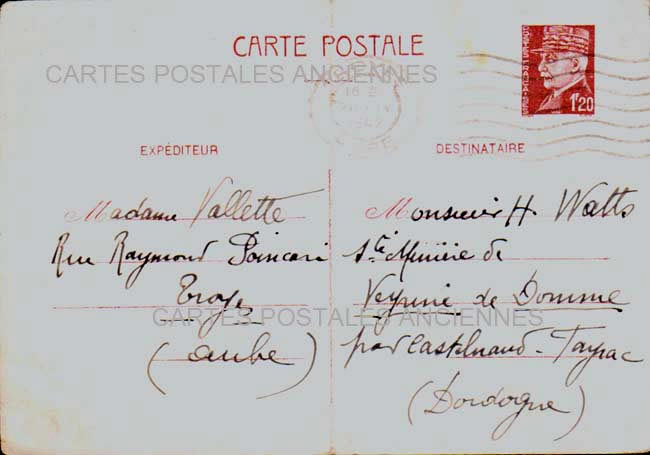 CARTE POSTALE
CARTES POSTALES ANCIENNES
1F20
EXPÉDITEUR
Madame Vallette
Rue Raymond Poincaré
Troyes
(Aube)
DESTINATAIRE
Monsieur H Watts
Sté Minière de
de Domme
par Castelnaud-Fayrac
(Dordogne)
CARTES POSTALES ANCIENNES